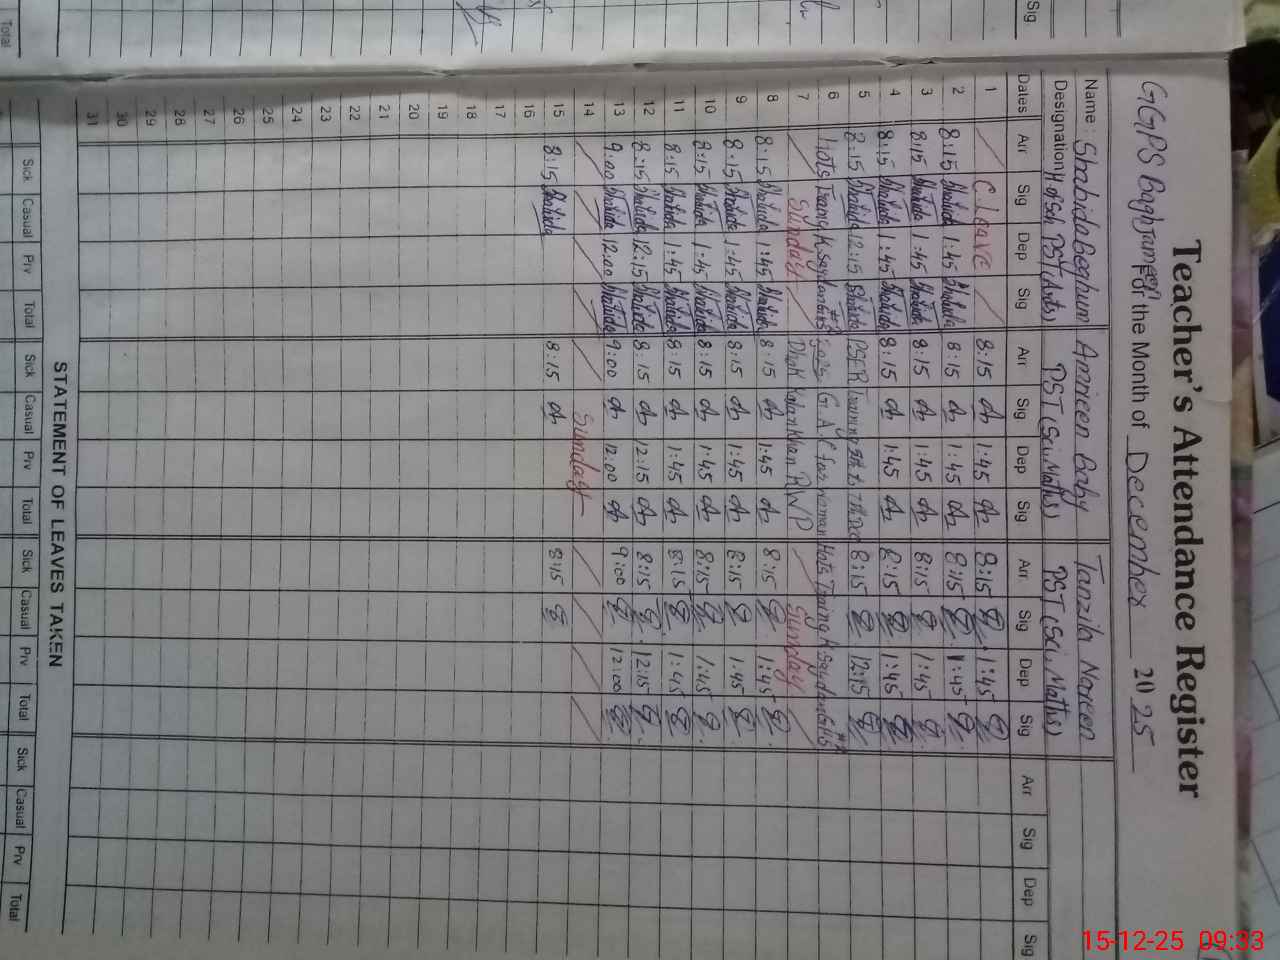 Teacher's Attendance Register
GGPS Bagh Jameel For the Month of December 2025
Name: Shahida Beghum Amreen Baby Tanzila Noreen
Designation H of Sch PST (Arts) PST (Sci, Maths) PST (Sci, Maths)
Dates Arr Sig Dep Sig Arr Sig Dep Sig Arr Sig Dep Sig Arr Sig Dep Sig
1 C. Leave 8:15 1:45 8:15 1:45
2 8:15 Shahida 1:45 Shahida 8:15 1:45 8:15 1:45
3 8:15 Shahida 1:45 Shahida 8:15 1:45 8:15 1:45
4 8:15 Shahida 1:45 Shahida 8:15 1:45 8:15 1:45
5 8:15 Shahida 12:15 Shahida PSER Training 8:15 12:15
6 Hots Traing G.A.C for Woman Hots Traing
7 Sunday Dhok Kalan Khan RWP Sunday
8 8:15 Shahida 1:45 Shahida 8:15 1:45 8:15 1:45
9 8:15 Shahida 1:45 Shahida 8:15 1:45 8:15 1:45
10 8:15 Shahida 1:45 Shahida 8:15 1:45 8:15 1:45
11 8:15 Shahida 1:45 Shahida 8:15 1:45 8:15 1:45
12 8:15 Shahida 12:15 Shahida 8:15 12:15 8:15 12:15
13 9:00 Shahida 12:00 Shahida 9:00 12:00 9:00 12:00
14 Sunday
15 8:15 Shahida 8:15 8:15
16
17
18
19
20
21
22
23
24
25
26
27
28
29
30
31
STATEMENT OF LEAVES TAKEN
Sick Casual Prv Total Sick Casual Prv Total Sick Casual Prv Total Sick Casual Prv Total
Sig.
Total
15-12-25 09:33